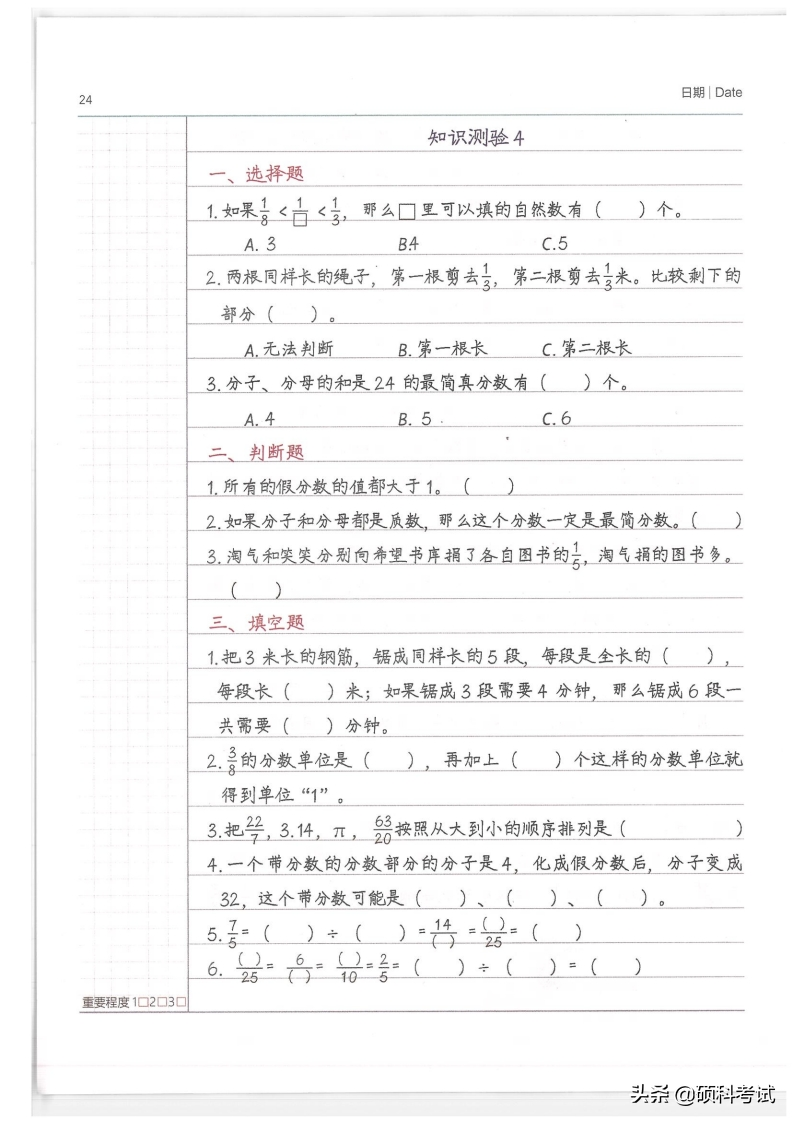 24
日期 | Date
知识测验4
一、选择题
1.如果1/8<1/□<1/3，那么□里可以填的自然数有（　　）个。
A.3　　B.4　　C.5
2.两根同样长的绳子，第一根剪去1/3，第二根剪去1/3米。比较剩下的
部分（　　）。
A.无法判断　　B.第一根长　　C.第二根长
3.分子、分母的和是24 的最简真分数有（　　）个。
A.4　　B.5　　C.6
二、判断题
1.所有的假分数的值都大于1。（　　）
2.如果分子和分母都是质数，那么这个分数一定是最简分数。（　　）
3.淘气和笑笑分别向希望书库捐了各自图书的1/5，淘气捐的图书多。
（　　）
三、填空题
1.把3 米长的钢筋，锯成同样长的5 段，每段是全长的（　　），
每段长（　　）米；如果锯成3段需要4 分钟，那么锯成6 段一
共需要（　　）分钟。
2.3/8的分数单位是（　　），再加上（　　）个这样的分数单位就
得到单位“1”。
3.把22/7，3.14，π，63/20按照从大到小的顺序排列是（　　）
4.一个带分数的分数部分的分子是4，化成假分数后，分子变成
32，这个带分数可能是（　　）、（　　）、（　　）。
5.7/5=（　　）÷（　　）=14/( )=( )/25=（　　）
6.( )/25=6/( )=( )/10=2/5=（　　）÷（　　）=（　　）
重要程度 1□2□3□
头条 @硕科考试